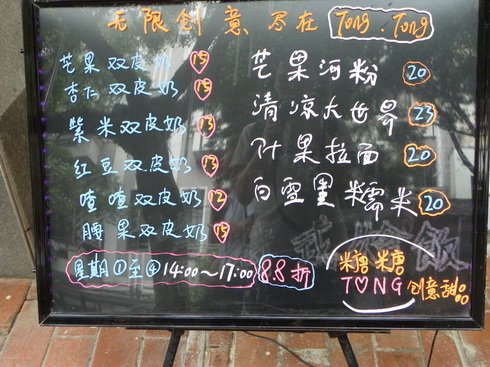 无限创意 尽在 Tong.Tong
芒果双皮奶 15
杏仁双皮奶 15
紫米双皮奶 13
红豆双皮奶 13
喳喳双皮奶 12
腰果双皮奶 15
芒果河粉 20
清凉大世界 23
什果拉面 20
白雪黑糯米 20
星期①至④ 14:00~17:00 8.8折
糖糖
TONG 创意甜品